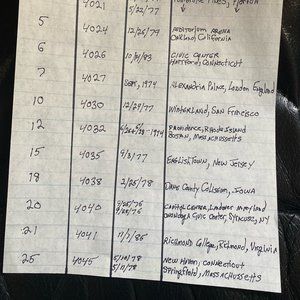 4021 5/22/77
5 4024 12/28/79 Auditorium Arena
Oakland California
6 4026 10/01/83 Civic Center
Hartford, Connecticut
7 4027 Sept, 1974 Alexandria Palace, London England
10 4030 12/29/77 Winterland, San Francisco
12 4032 Providence, Rhode Island
Boston, Massachussetts
15 4035 9/3/77 Englishtown, New Jersey
18 4038 2/25/78 Coliseum, Iowa
20 4040 Capitol Center, Maryland
Civic Center, Syracuse, NY
21 4041 11/2/85 Richmond, Virginia
25 4045 5/10/78 New Haven, Connecticut
5/11/78 Springfield, Massachussetts